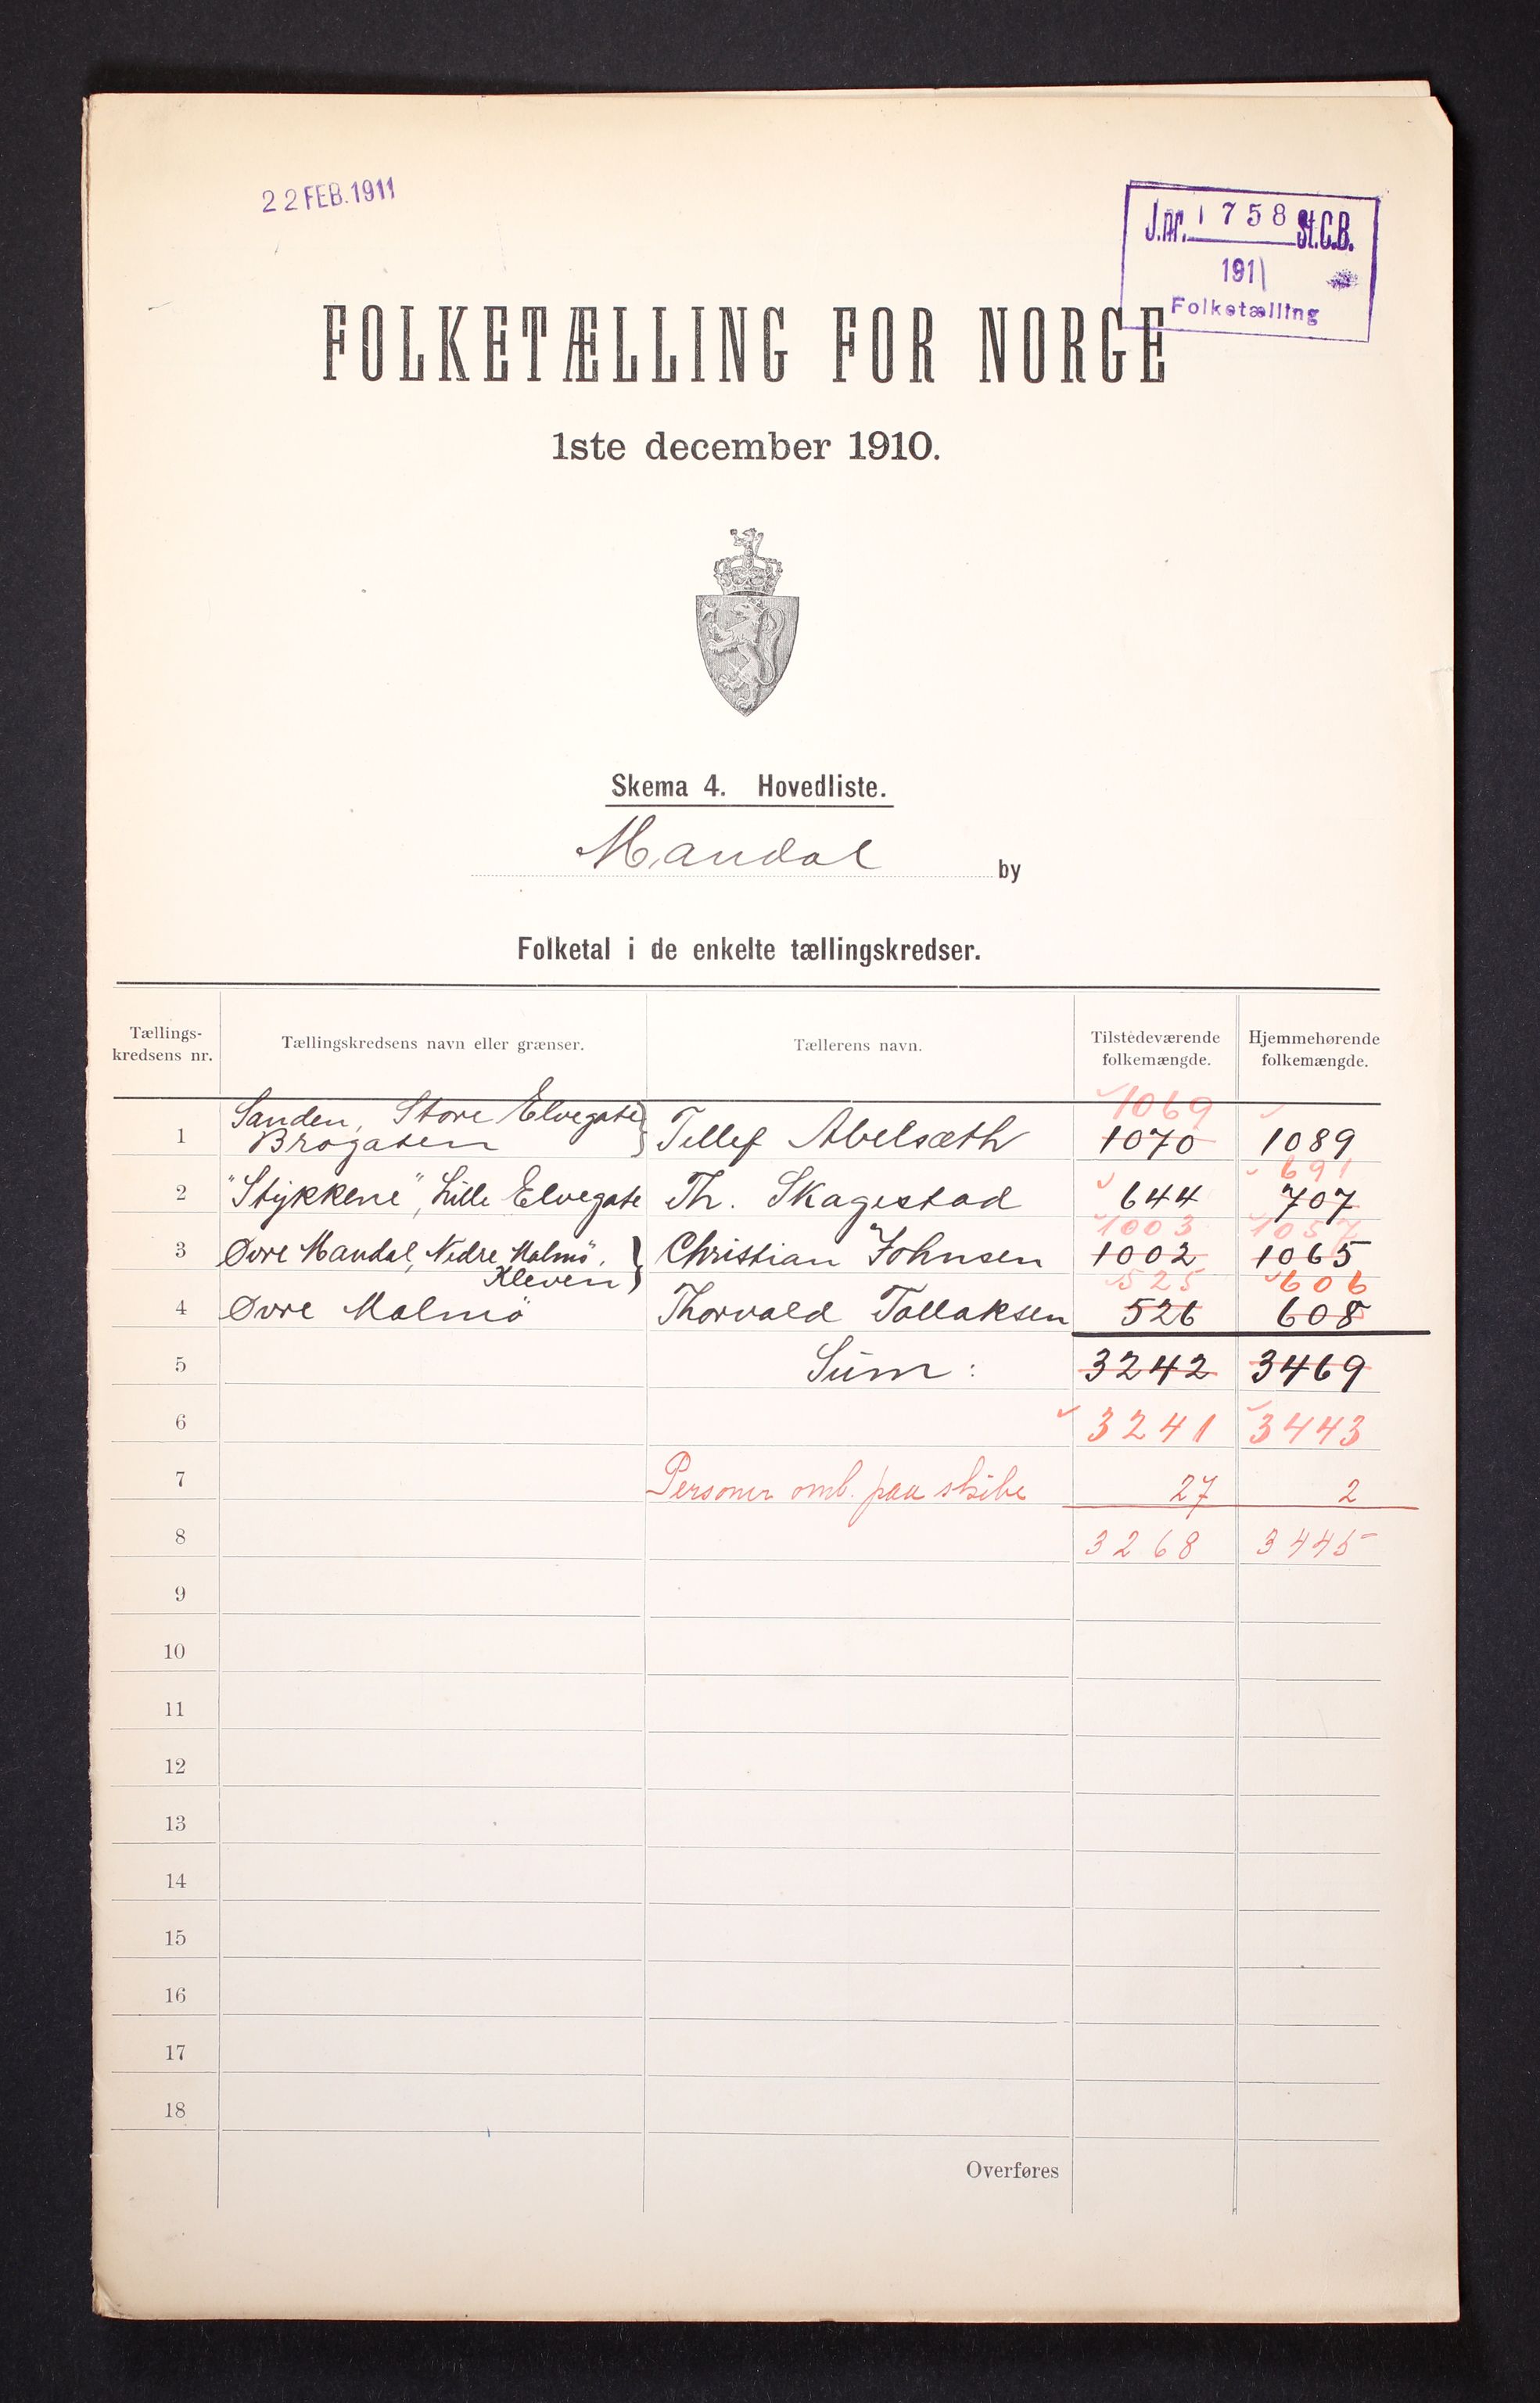 22 FEB. 1911
J.nr. 1758 St.C.B.
1911
Folketælling
FOLKETÆLLING FOR NORGE
1ste december 1910.
Skema 4. Hovedliste.
Mandal by
Folketal i de enkelte tællingskredser.
Tællings-kredsens nr. Tællingskredsens navn eller grænser. Tællerens navn. Tilstedeværende folkemængde. Hjemmehørende folkemængde.
1069
1 Sanden, Store Elvegate Brogaten Tellef Abelsæth 1070 1089
691
2 "Stykkene", Lille Elvegate Th. Skagestad 644 707
1003 1057
3 Øvre Mandal, Nedre Malmö, Kleven Christian Johnsen 1002 1065
525 606
4 Øvre Malmö Thorvald Tallaksen 526 608
5 Sum: 3242 3469
6 3241 3443
7 Personer omb. paa skibe 27 2
8 3268 3445
9
10
11
12
13
14
15
16
17
18
Overføres